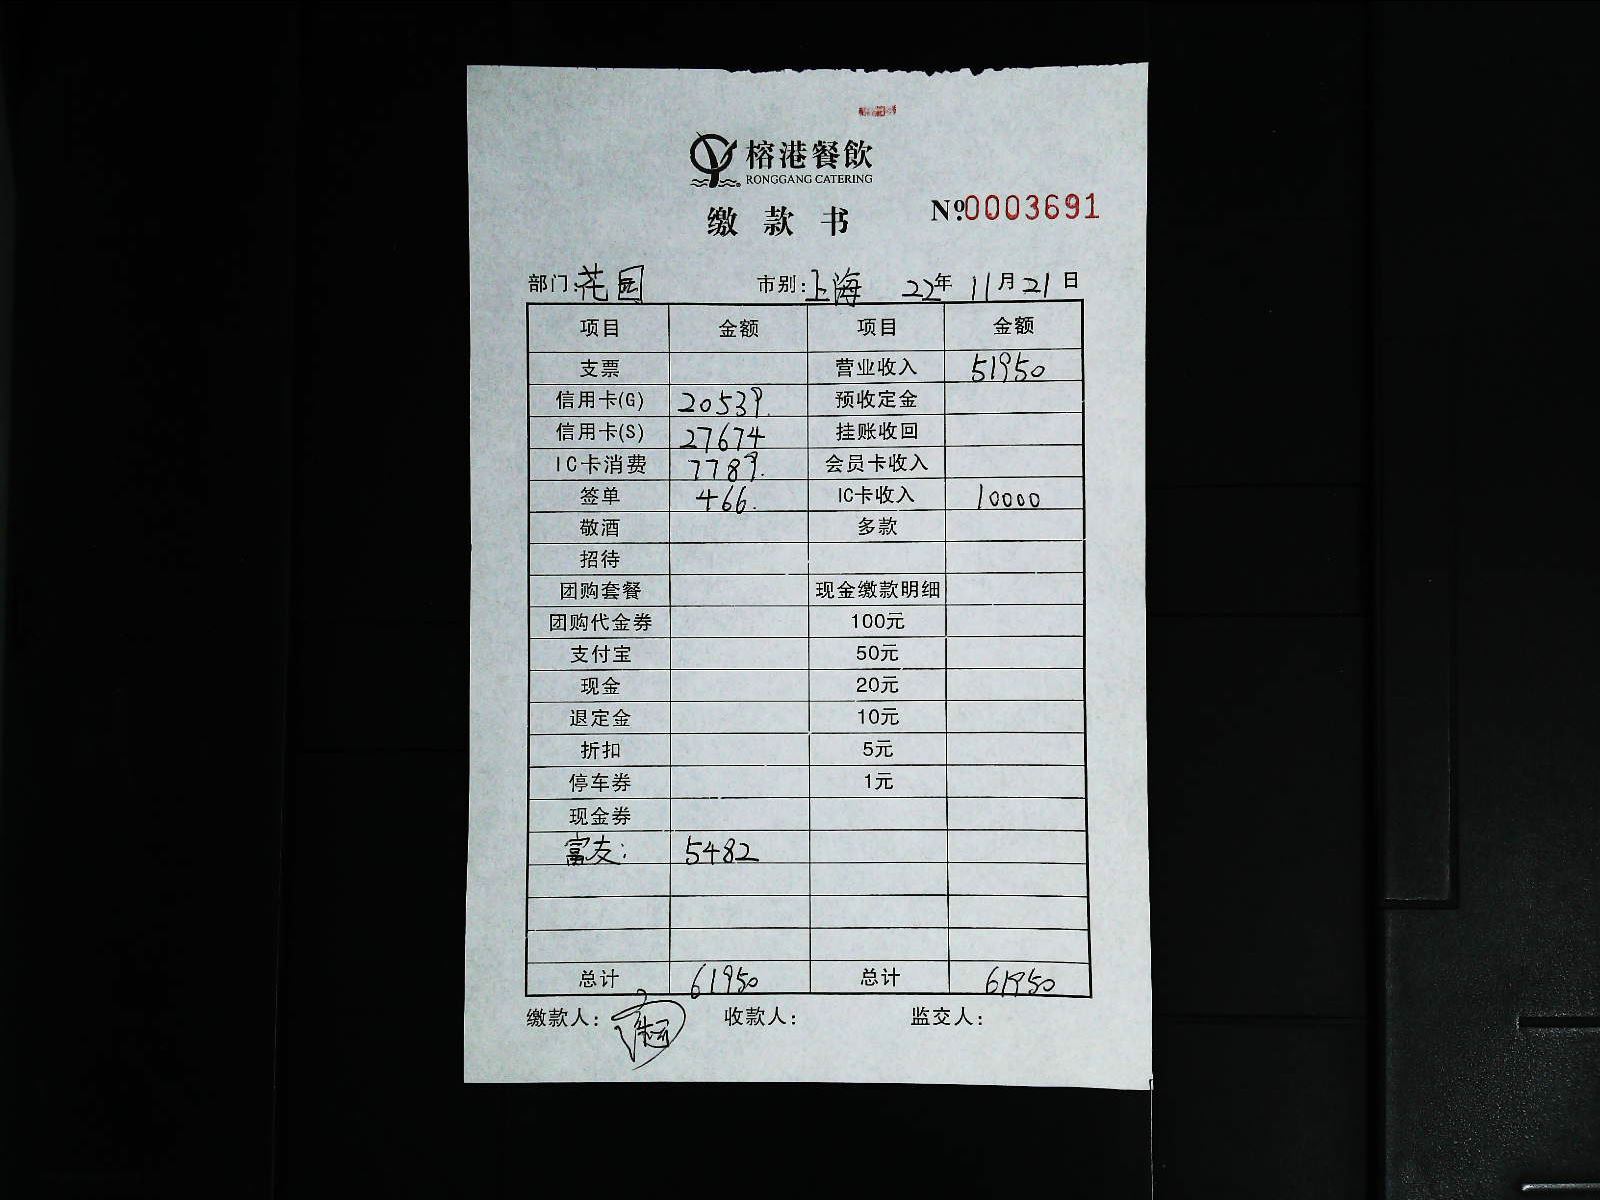 榕港餐飲
RONGGANG CATERING
缴款书
Nº0003691
部门:花园 市别:上海 22年11月21日
项目 金额 项目 金额
支票 营业收入 51950
信用卡(G) 20539. 预收定金
信用卡(S) 27674 挂账收回
IC卡消费 7789. 会员卡收入
签单 466. IC卡收入 10000
敬酒 多款
招待
团购套餐 现金缴款明细
团购代金券 100元
支付宝 50元
现金 20元
退定金 10元
折扣 5元
停车券 1元
现金券
富友: 5482
总计 61950 总计 61950
缴款人: 收款人: 监交人: